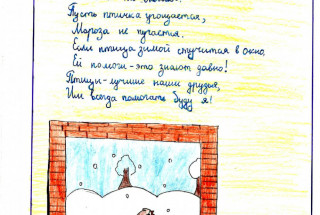 Пусть птичка угощается,
Мороза не пугается.
Если птица зимой стучится в окно,
Ей помоги-это знают давно!
Птицы-лучшие наши друзья,
Им всегда помогать буду я!